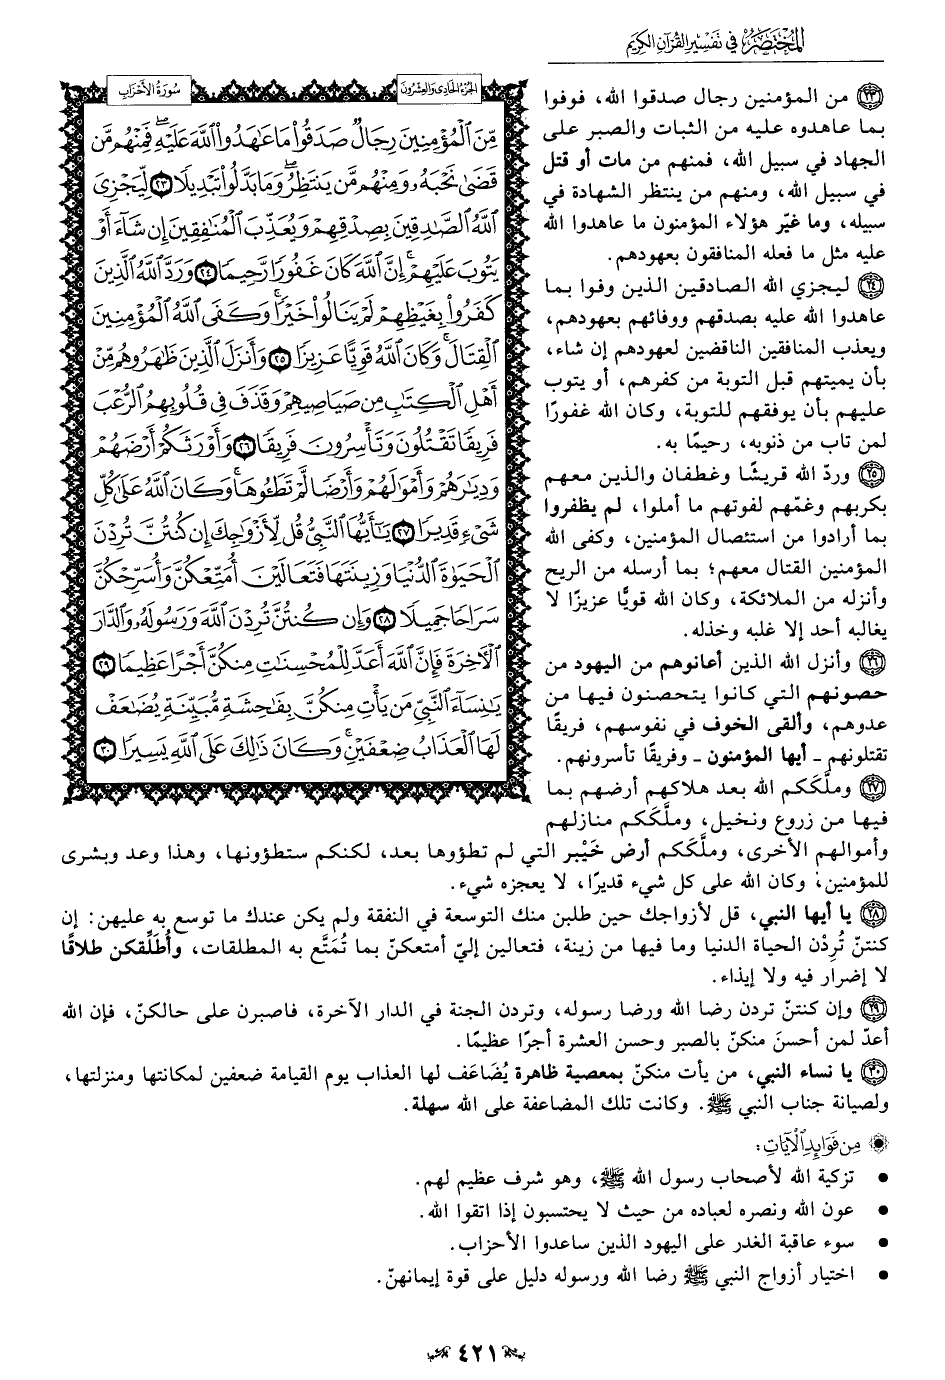 المختصر في تفسير القرآن الكريم
الجزء الحادي والعشرون
سورة الأحزاب
مِّنَ ٱلْمُؤْمِنِينَ رِجَالٌ صَدَقُوا۟ مَا عَـٰهَدُوا۟ ٱللَّهَ عَلَيْهِ ۖ فَمِنْهُم مَّن
قَضَىٰ نَحْبَهُۥ وَمِنْهُم مَّن يَنتَظِرُ ۖ وَمَا بَدَّلُوا۟ تَبْدِيلًا ٢٣ لِّيَجْزِىَ
ٱللَّهُ ٱلصَّـٰدِقِينَ بِصِدْقِهِمْ وَيُعَذِّبَ ٱلْمُنَـٰفِقِينَ إِن شَآءَ أَوْ
يَتُوبَ عَلَيْهِمْ ۚ إِنَّ ٱللَّهَ كَانَ غَفُورًا رَّحِيمًا ٢٤ وَرَدَّ ٱللَّهُ ٱلَّذِينَ
كَفَرُوا۟ بِغَيْظِهِمْ لَمْ يَنَالُوا۟ خَيْرًا ۚ وَكَفَى ٱللَّهُ ٱلْمُؤْمِنِينَ
ٱلْقِتَالَ ۚ وَكَانَ ٱللَّهُ قَوِيًّا عَزِيزًا ٢٥ وَأَنزَلَ ٱلَّذِينَ ظَـٰهَرُوهُم مِّنْ
أَهْلِ ٱلْكِتَـٰبِ مِن صَيَاصِيهِمْ وَقَذَفَ فِى قُلُوبِهِمُ ٱلرُّعْبَ
فَرِيقًا تَقْتُلُونَ وَتَأْسِرُونَ فَرِيقًا ٢٦ وَأَوْرَثَكُمْ أَرْضَهُمْ
وَدِيَـٰرَهُمْ وَأَمْوَٰلَهُمْ وَأَرْضًا لَّمْ تَطَـُٔوهَا ۚ وَكَانَ ٱللَّهُ عَلَىٰ كُلِّ
شَىْءٍ قَدِيرًا ٢٧ يَـٰٓأَيُّهَا ٱلنَّبِىُّ قُل لِّأَزْوَٰجِكَ إِن كُنتُنَّ تُرِدْنَ
ٱلْحَيَوٰةَ ٱلدُّنْيَا وَزِينَتَهَا فَتَعَالَيْنَ أُمَتِّعْكُنَّ وَأُسَرِّحْكُنَّ
سَرَاحًا جَمِيلًا ٢٨ وَإِن كُنتُنَّ تُرِدْنَ ٱللَّهَ وَرَسُولَهُۥ وَٱلدَّارَ
ٱلْـَٔاخِرَةَ فَإِنَّ ٱللَّهَ أَعَدَّ لِلْمُحْسِنَـٰتِ مِنكُنَّ أَجْرًا عَظِيمًا ٢٩
يَـٰنِسَآءَ ٱلنَّبِىِّ مَن يَأْتِ مِنكُنَّ بِفَـٰحِشَةٍ مُّبَيِّنَةٍ يُضَـٰعَفْ
لَهَا ٱلْعَذَابُ ضِعْفَيْنِ ۚ وَكَانَ ذَٰلِكَ عَلَى ٱللَّهِ يَسِيرًا ٣٠
٢٣ من المؤمنين رجال صدقوا الله، فوفوا
بما عاهدوه عليه من الثبات والصبر على
الجهاد في سبيل الله، فمنهم من مات أو قتل
في سبيل الله، ومنهم من ينتظر الشهادة في
سبيله، وما غيّر هؤلاء المؤمنون ما عاهدوا الله
عليه مثل ما فعله المنافقون بعهودهم.
٢٤ ليجزي الله الصادقين الذين وفوا بما
عاهدوا الله عليه بصدقهم ووفائهم بعهودهم،
ويعذب المنافقين الناقضين لعهودهم إن شاء،
بأن يميتهم قبل التوبة من كفرهم، أو يتوب
عليهم بأن يوفقهم للتوبة، وكان الله غفورًا
لمن تاب من ذنوبه، رحيمًا به.
٢٥ وردّ الله قريشًا وغطفان والذين معهم
بكربهم وغمّهم لفوتهم ما أملوا، لم يظفروا
بما أرادوا من استئصال المؤمنين، وكفى الله
المؤمنين القتال معهم؛ بما أرسله من الريح
وأنزله من الملائكة، وكان الله قويًّا عزيزًا لا
يغالبه أحد إلا غلبه وخذله.
٢٦ وأنزل الله الذين أعانوهم من اليهود من
حصونهم التي كانوا يتحصنون فيها من
عدوهم، وألقى الخوف في نفوسهم، فريقًا
تقتلونهم ـ أيها المؤمنون ـ وفريقًا تأسرونهم.
٢٧ وملَّكَكم الله بعد هلاكهم أرضهم بما
فيها من زروع ونخيل، وملَّكَكم منازلهم
وأموالهم الأخرى، وملَّكَكم أرض خَيْبر التي لم تطؤوها بعد، لكنكم ستطؤونها، وهذا وعد وبشرى
للمؤمنين، وكان الله على كل شيء قديرًا، لا يعجزه شيء.
٢٨ يا أيها النبي، قل لأزواجك حين طلبن منك التوسعة في النفقة ولم يكن عندك ما توسع به عليهن: إن
كنتنّ تُرِدْن الحياة الدنيا وما فيها من زينة، فتعالين إليّ أمتعكنّ بما تُمَتَّع به المطلقات، وأُطَلِّقكن طلاقًا
لا إضرار فيه ولا إيذاء.
٢٩ وإن كنتنّ تردن رضا الله ورضا رسوله، وتردن الجنة في الدار الآخرة، فاصبرن على حالكنّ، فإن الله
أعدّ لمن أحسنَ منكنّ بالصبر وحسن العشرة أجرًا عظيمًا.
٣٠ يا نساء النبي، من يأت منكنّ بمعصية ظاهرة يُضَاعَف لها العذاب يوم القيامة ضعفين لمكانتها ومنزلتها،
ولصيانة جناب النبي ﷺ. وكانت تلك المضاعفة على الله سهلة.
من فوائد الآيات:
• تزكية الله لأصحاب رسول الله ﷺ، وهو شرف عظيم لهم.
• عون الله ونصره لعباده من حيث لا يحتسبون إذا اتقوا الله.
• سوء عاقبة الغدر على اليهود الذين ساعدوا الأحزاب.
• اختيار أزواج النبي ﷺ رضا الله ورسوله دليل على قوة إيمانهنّ.
٤٢١